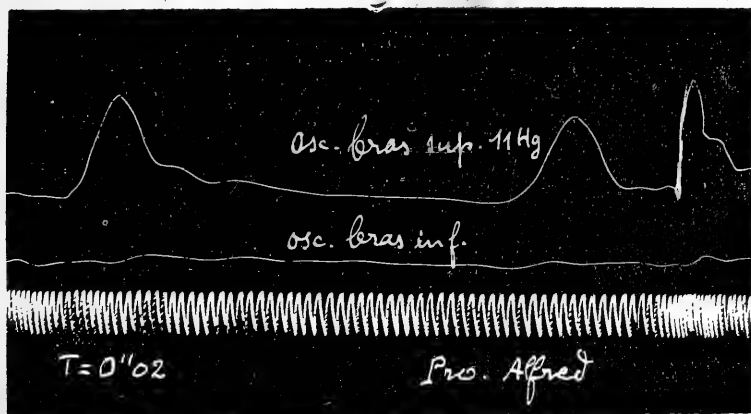 osc. bras sup. 11 Hg
osc. bras inf.
T = 0"02
Pro. Alfred